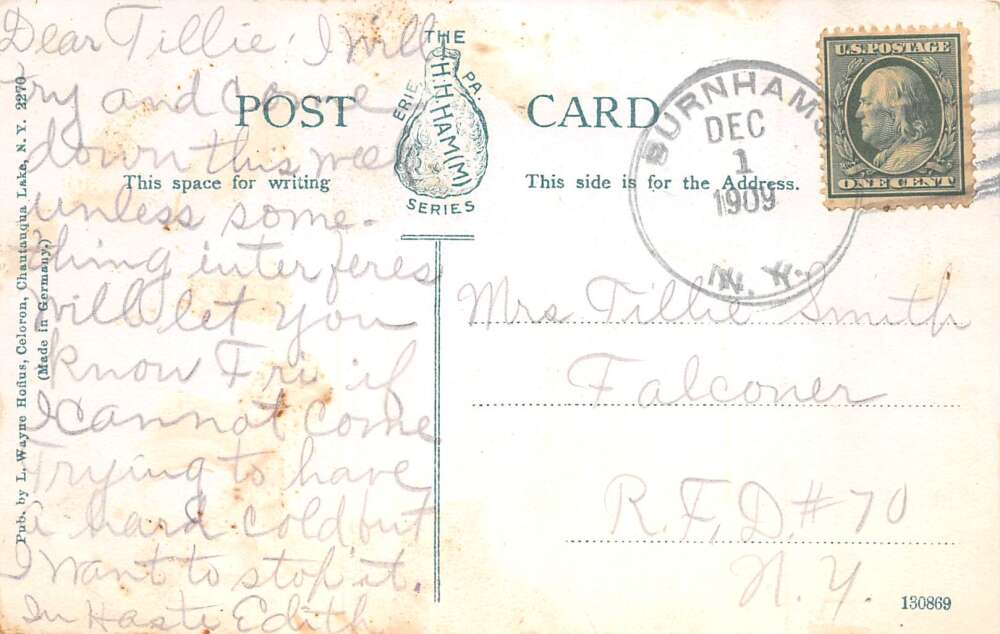 Dear Tillie: I will
try and come
down this week
unless some-
thing interferes
will let you
know Fri if
I cannot come
Trying to have
a hard cold but
I want to stop it.
In Haste Edith
THE
ERIE PA.
H.H.HAM(M)
SERIES
POST CARD
This space for writing
This side is for the Address.
BURNHAMS
DEC
1
1909
N.Y.
U.S. POSTAGE
ONE CENT
Mrs Tillie Smith
Falconer
R.F.D. #70
N.Y.
130869
Pub. by L. Wayne Hofius, Celoron, Chautauqua Lake, N. Y. 2270
(Made in Germany.)